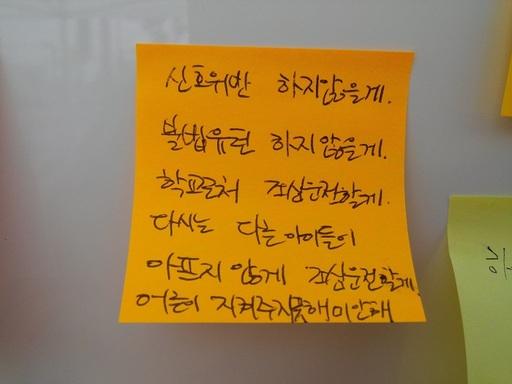 신호위반 하지않을게.
불법유턴 하지않을게.
학교근처 조심운전할게.
다시는 다른아이들이
아프지 않게 조심운전할게.
어른이 지켜주지못해미안해